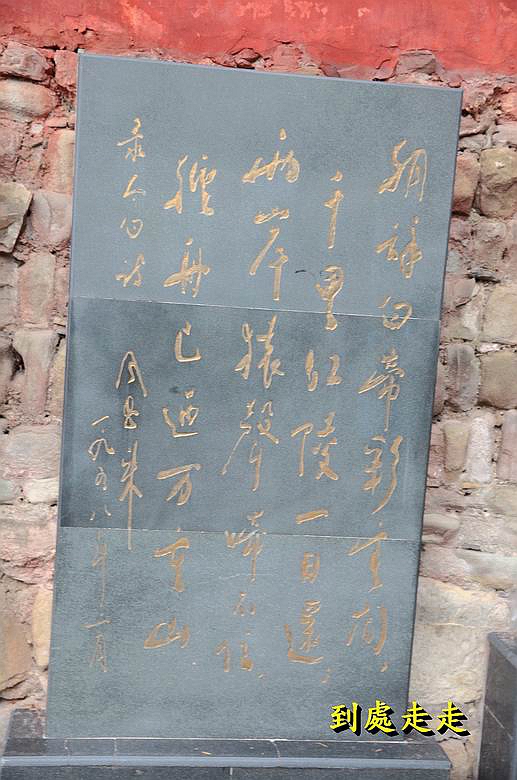 朝辞白帝彩云间，
千里江陵一日還，
兩岸猿聲啼不住，
轻舟已过万重山
录太白诗
周恩来
一九五八年一月
到處走走